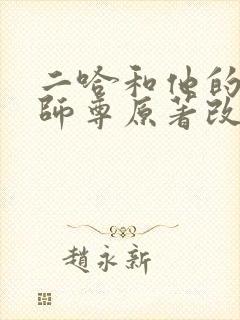 二哈和他的
師尊原著改
趙永新